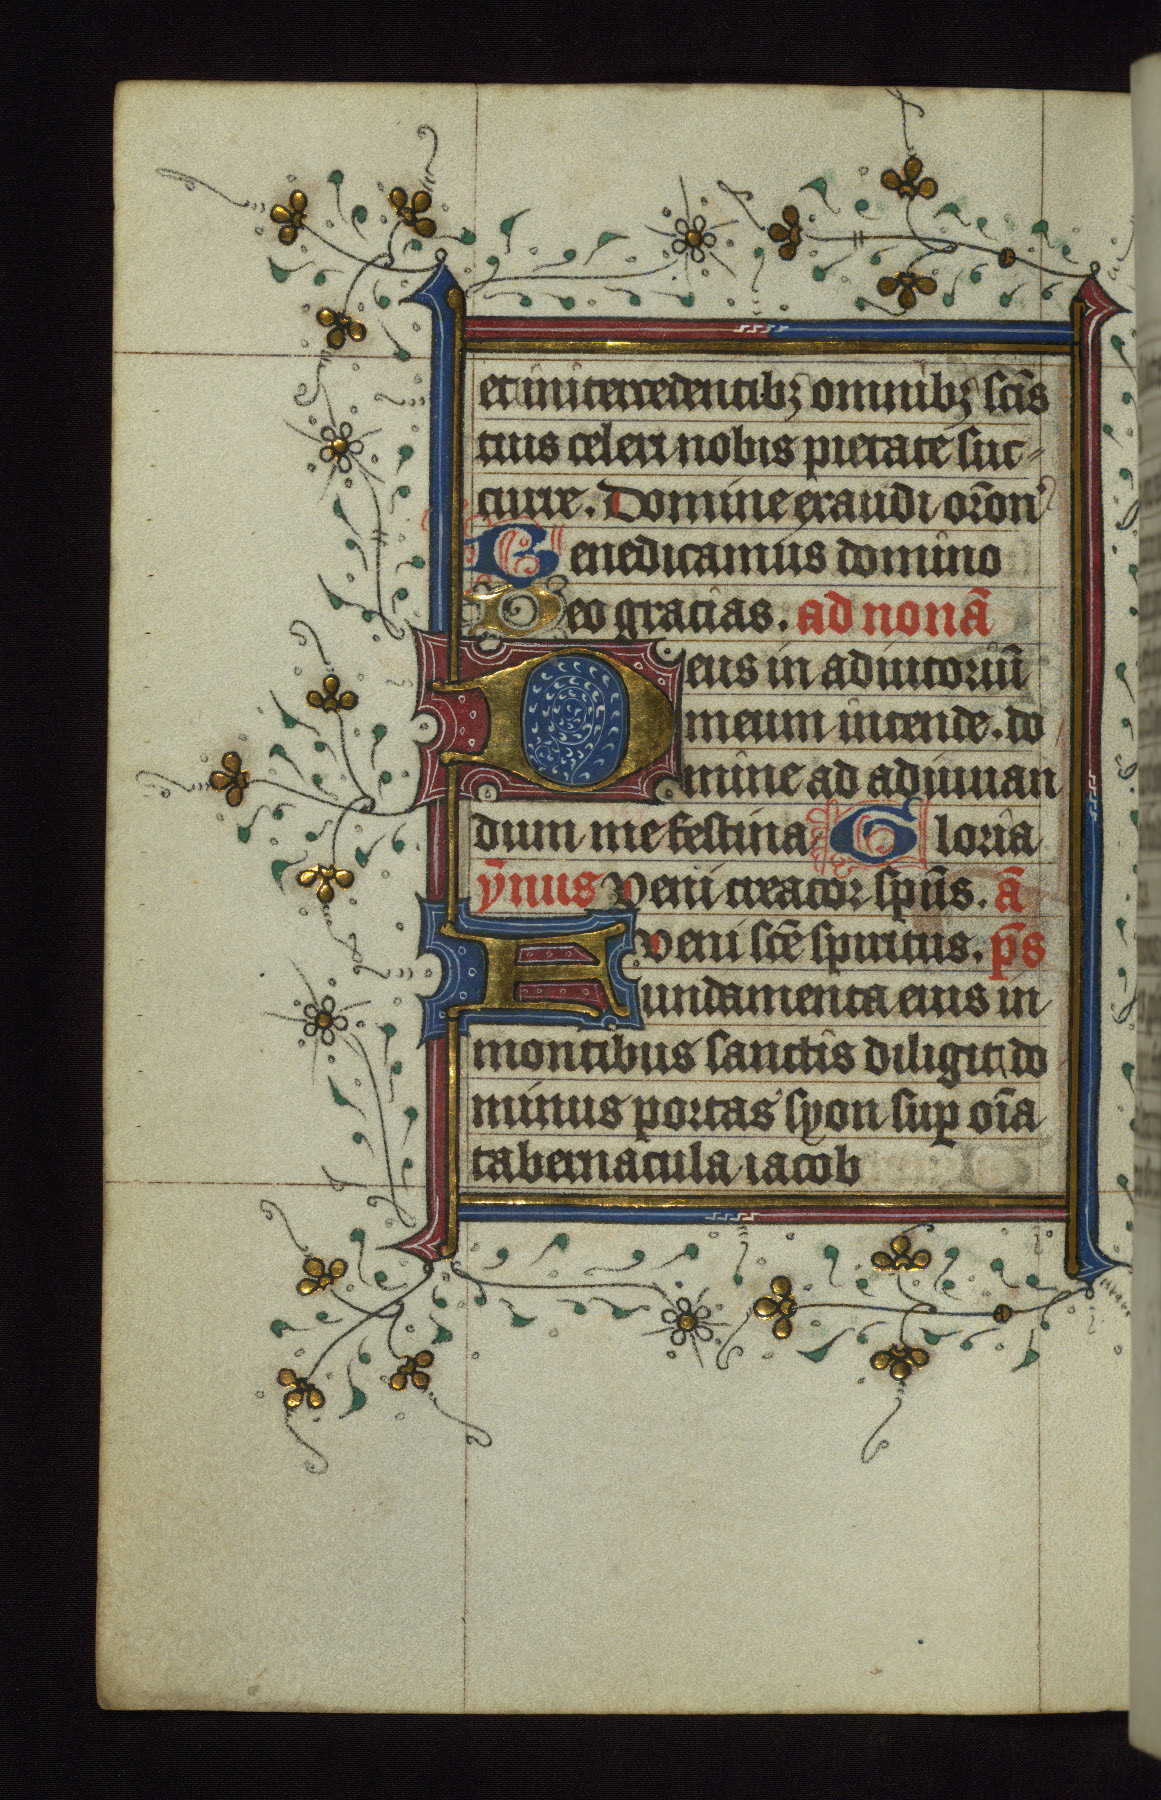 et intercedentibꝫ omnibꝫ scīs
tuis celeri nobis pietate suc-
curre. Domine exaudi oro̅n̉
Benedicamus domino
Deo gracias. ad nonā
Deus in adiutoriū
meum intende. do
mine ad adiuuan
dum me festina Gloria
ẏ̄nus Veni creator spūs. ā
Veni scē spiritus. p̄s
Fundamenta eius in
montibus sanctis diligit do
minus portas syon sup oīa
tabernacula iacob